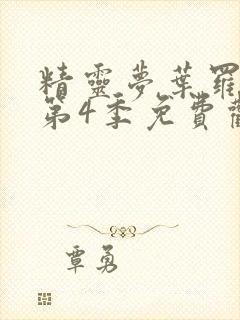 精靈夢葉羅
第4季免費觀
覃勇